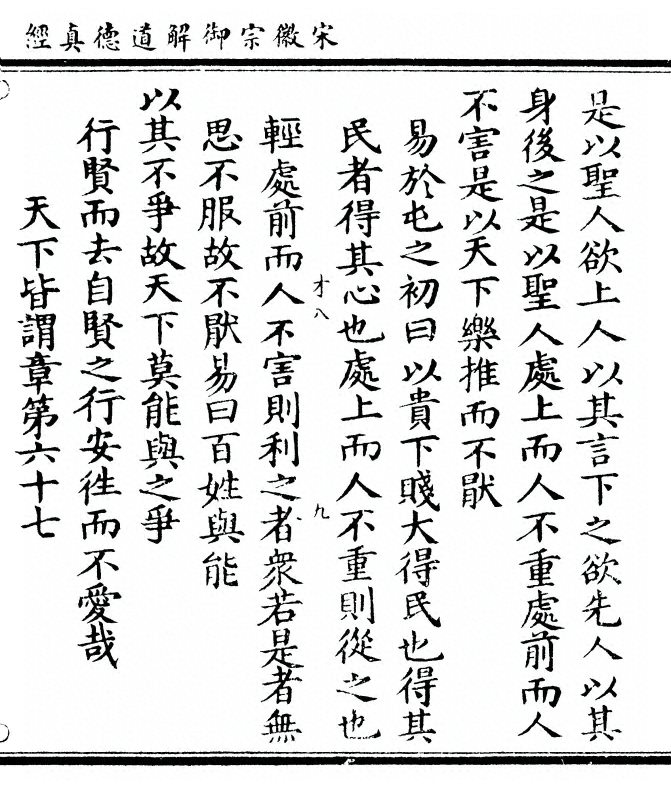 宋徽宗御解道德真經
是以聖人欲上人以其言下之欲先人以其
身後之是以聖人處上而人不重處前而人
不害是以天下樂推而不猒
易於屯之初曰以貴下賤大得民也得其
民者得其心也處上而人不重則從之也
才八
九
輕處前而人不害則利之者衆若是者無
思不服故不猒易曰百姓與能
以其不爭故天下莫能與之爭
行賢而去自賢之行安徃而不愛哉
天下皆謂章第六十七